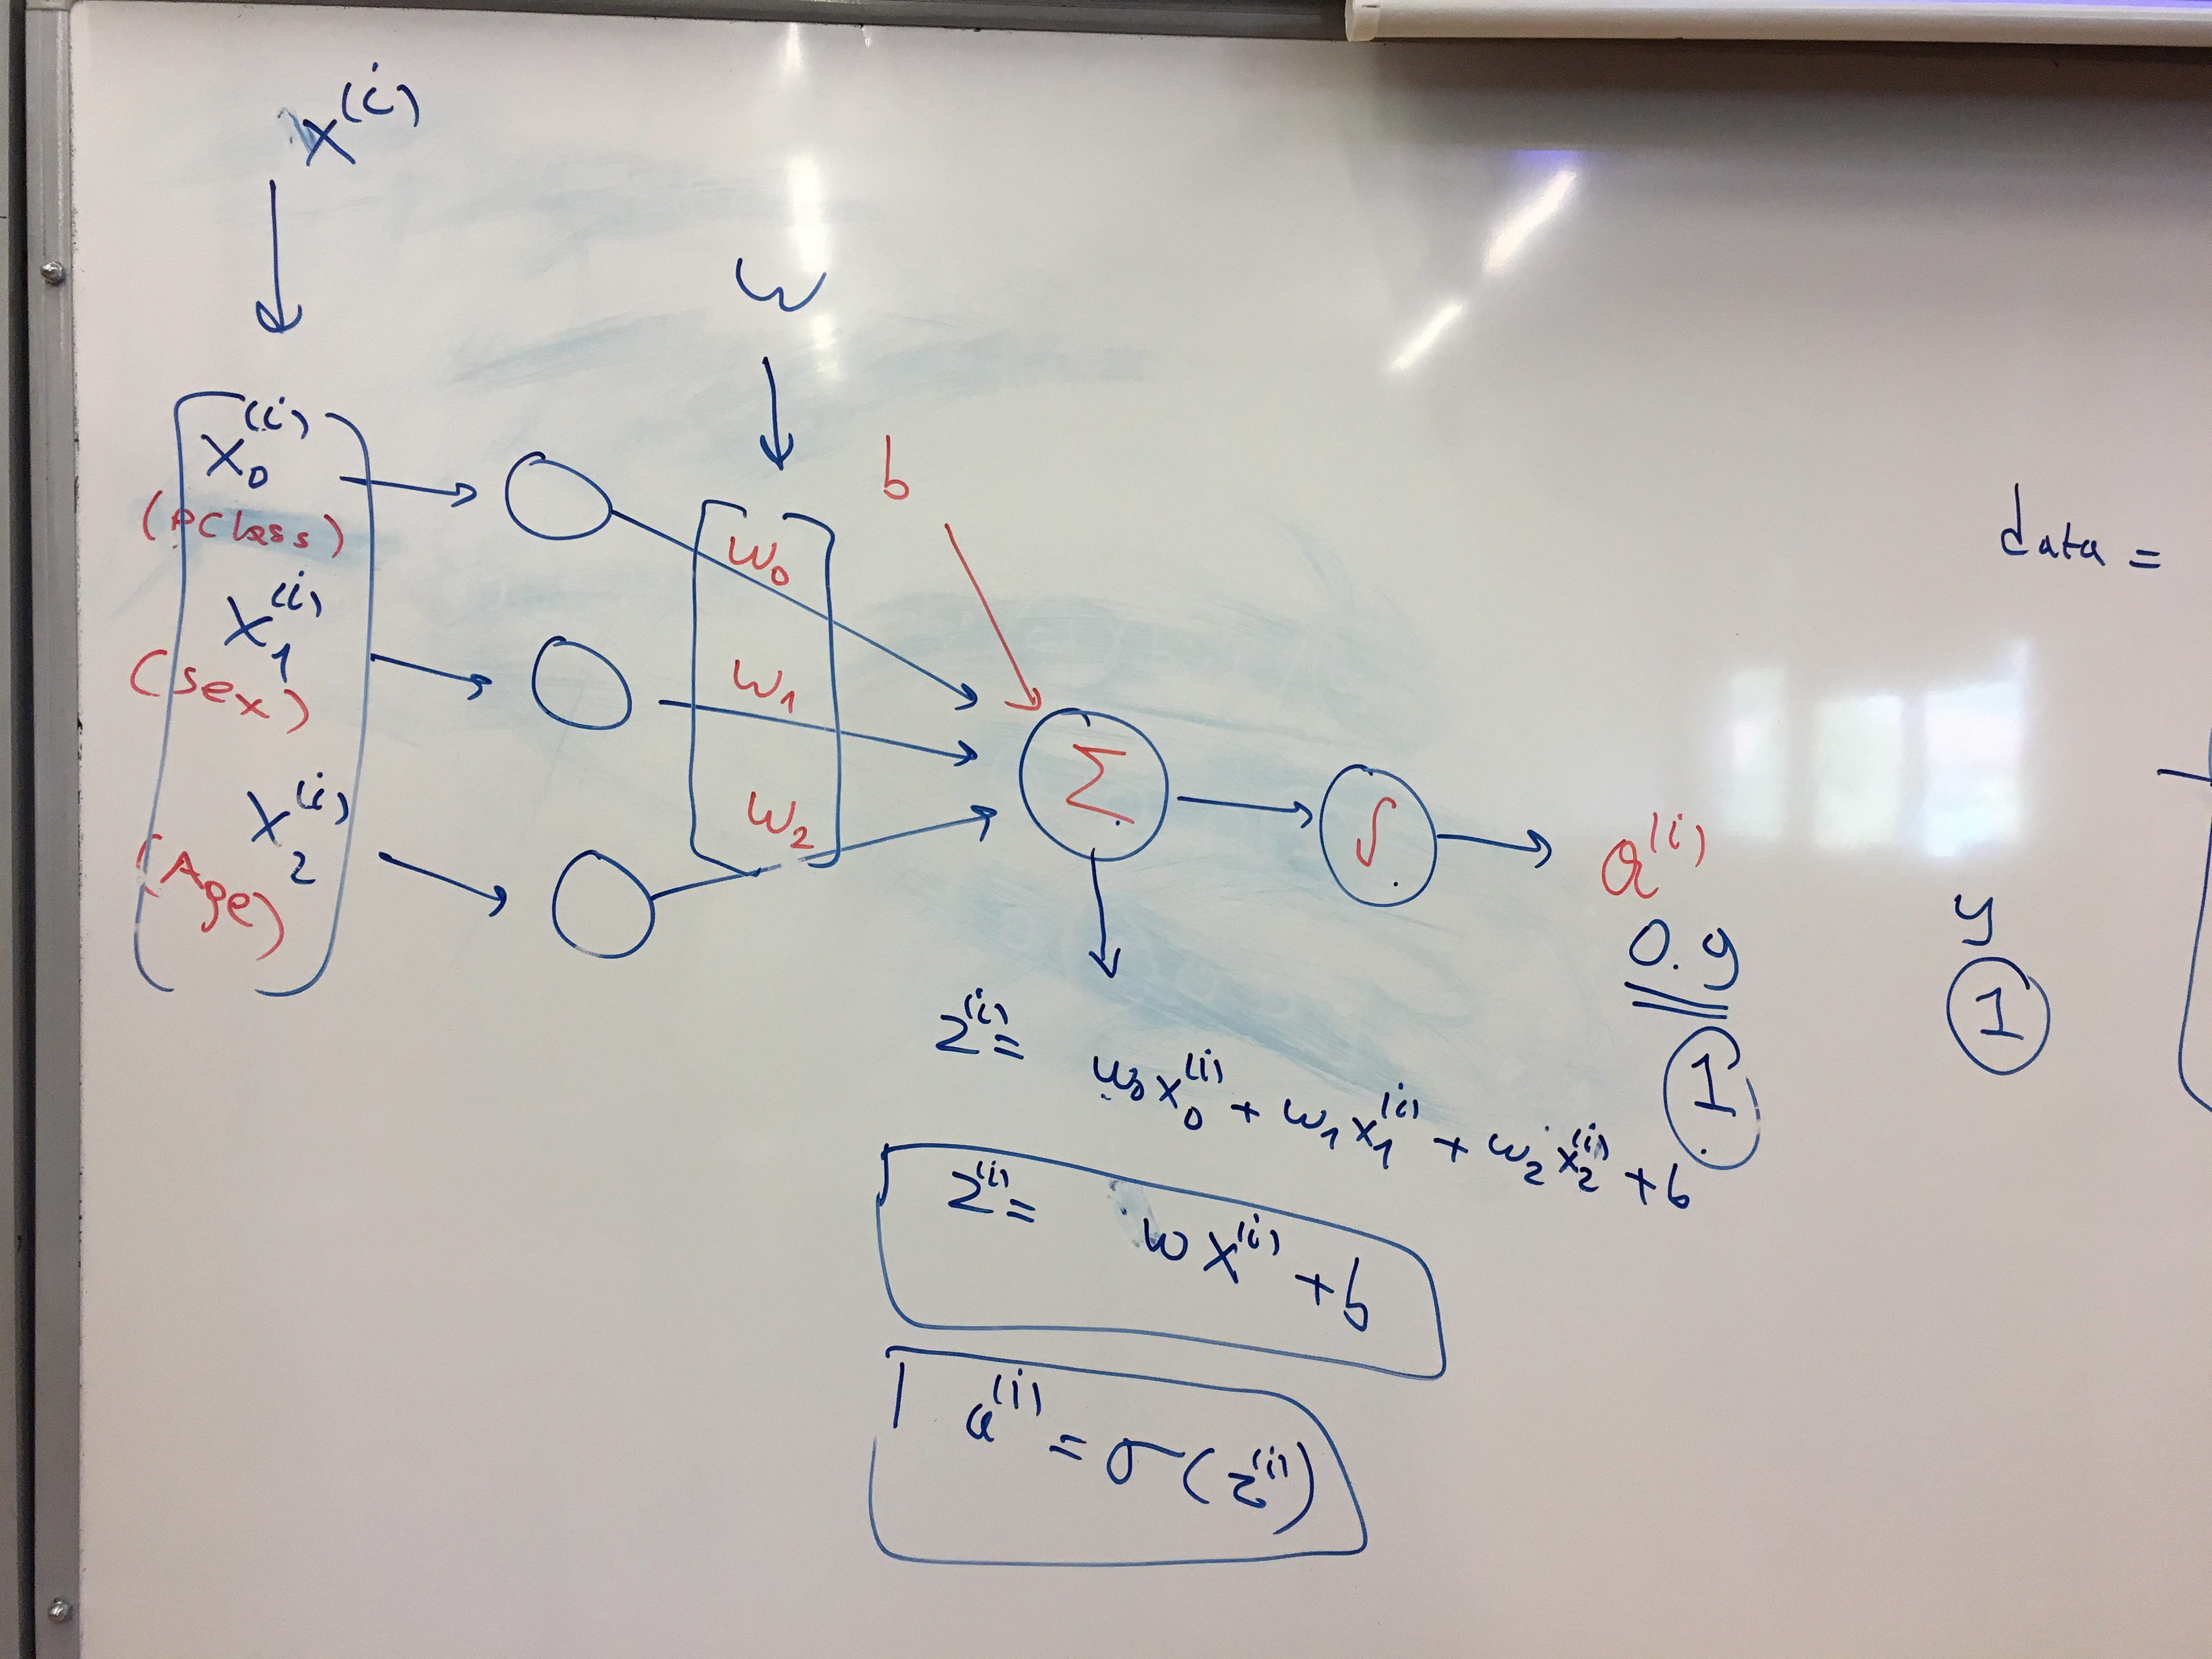 x^(i)
w
b
x_0^(i)
(PClass)
x_1^(i)
(sex)
x_2^(i)
(Age)
w_0
w_1
w_2
Σ
∫
a^(i)
0.9
1
y
1
data =
z^(i) = w_0 x_0^(i) + w_1 x_1^(i) + w_2 x_2^(i) + b
z^(i) = w x^(i) + b
a^(i) = σ(z^(i))